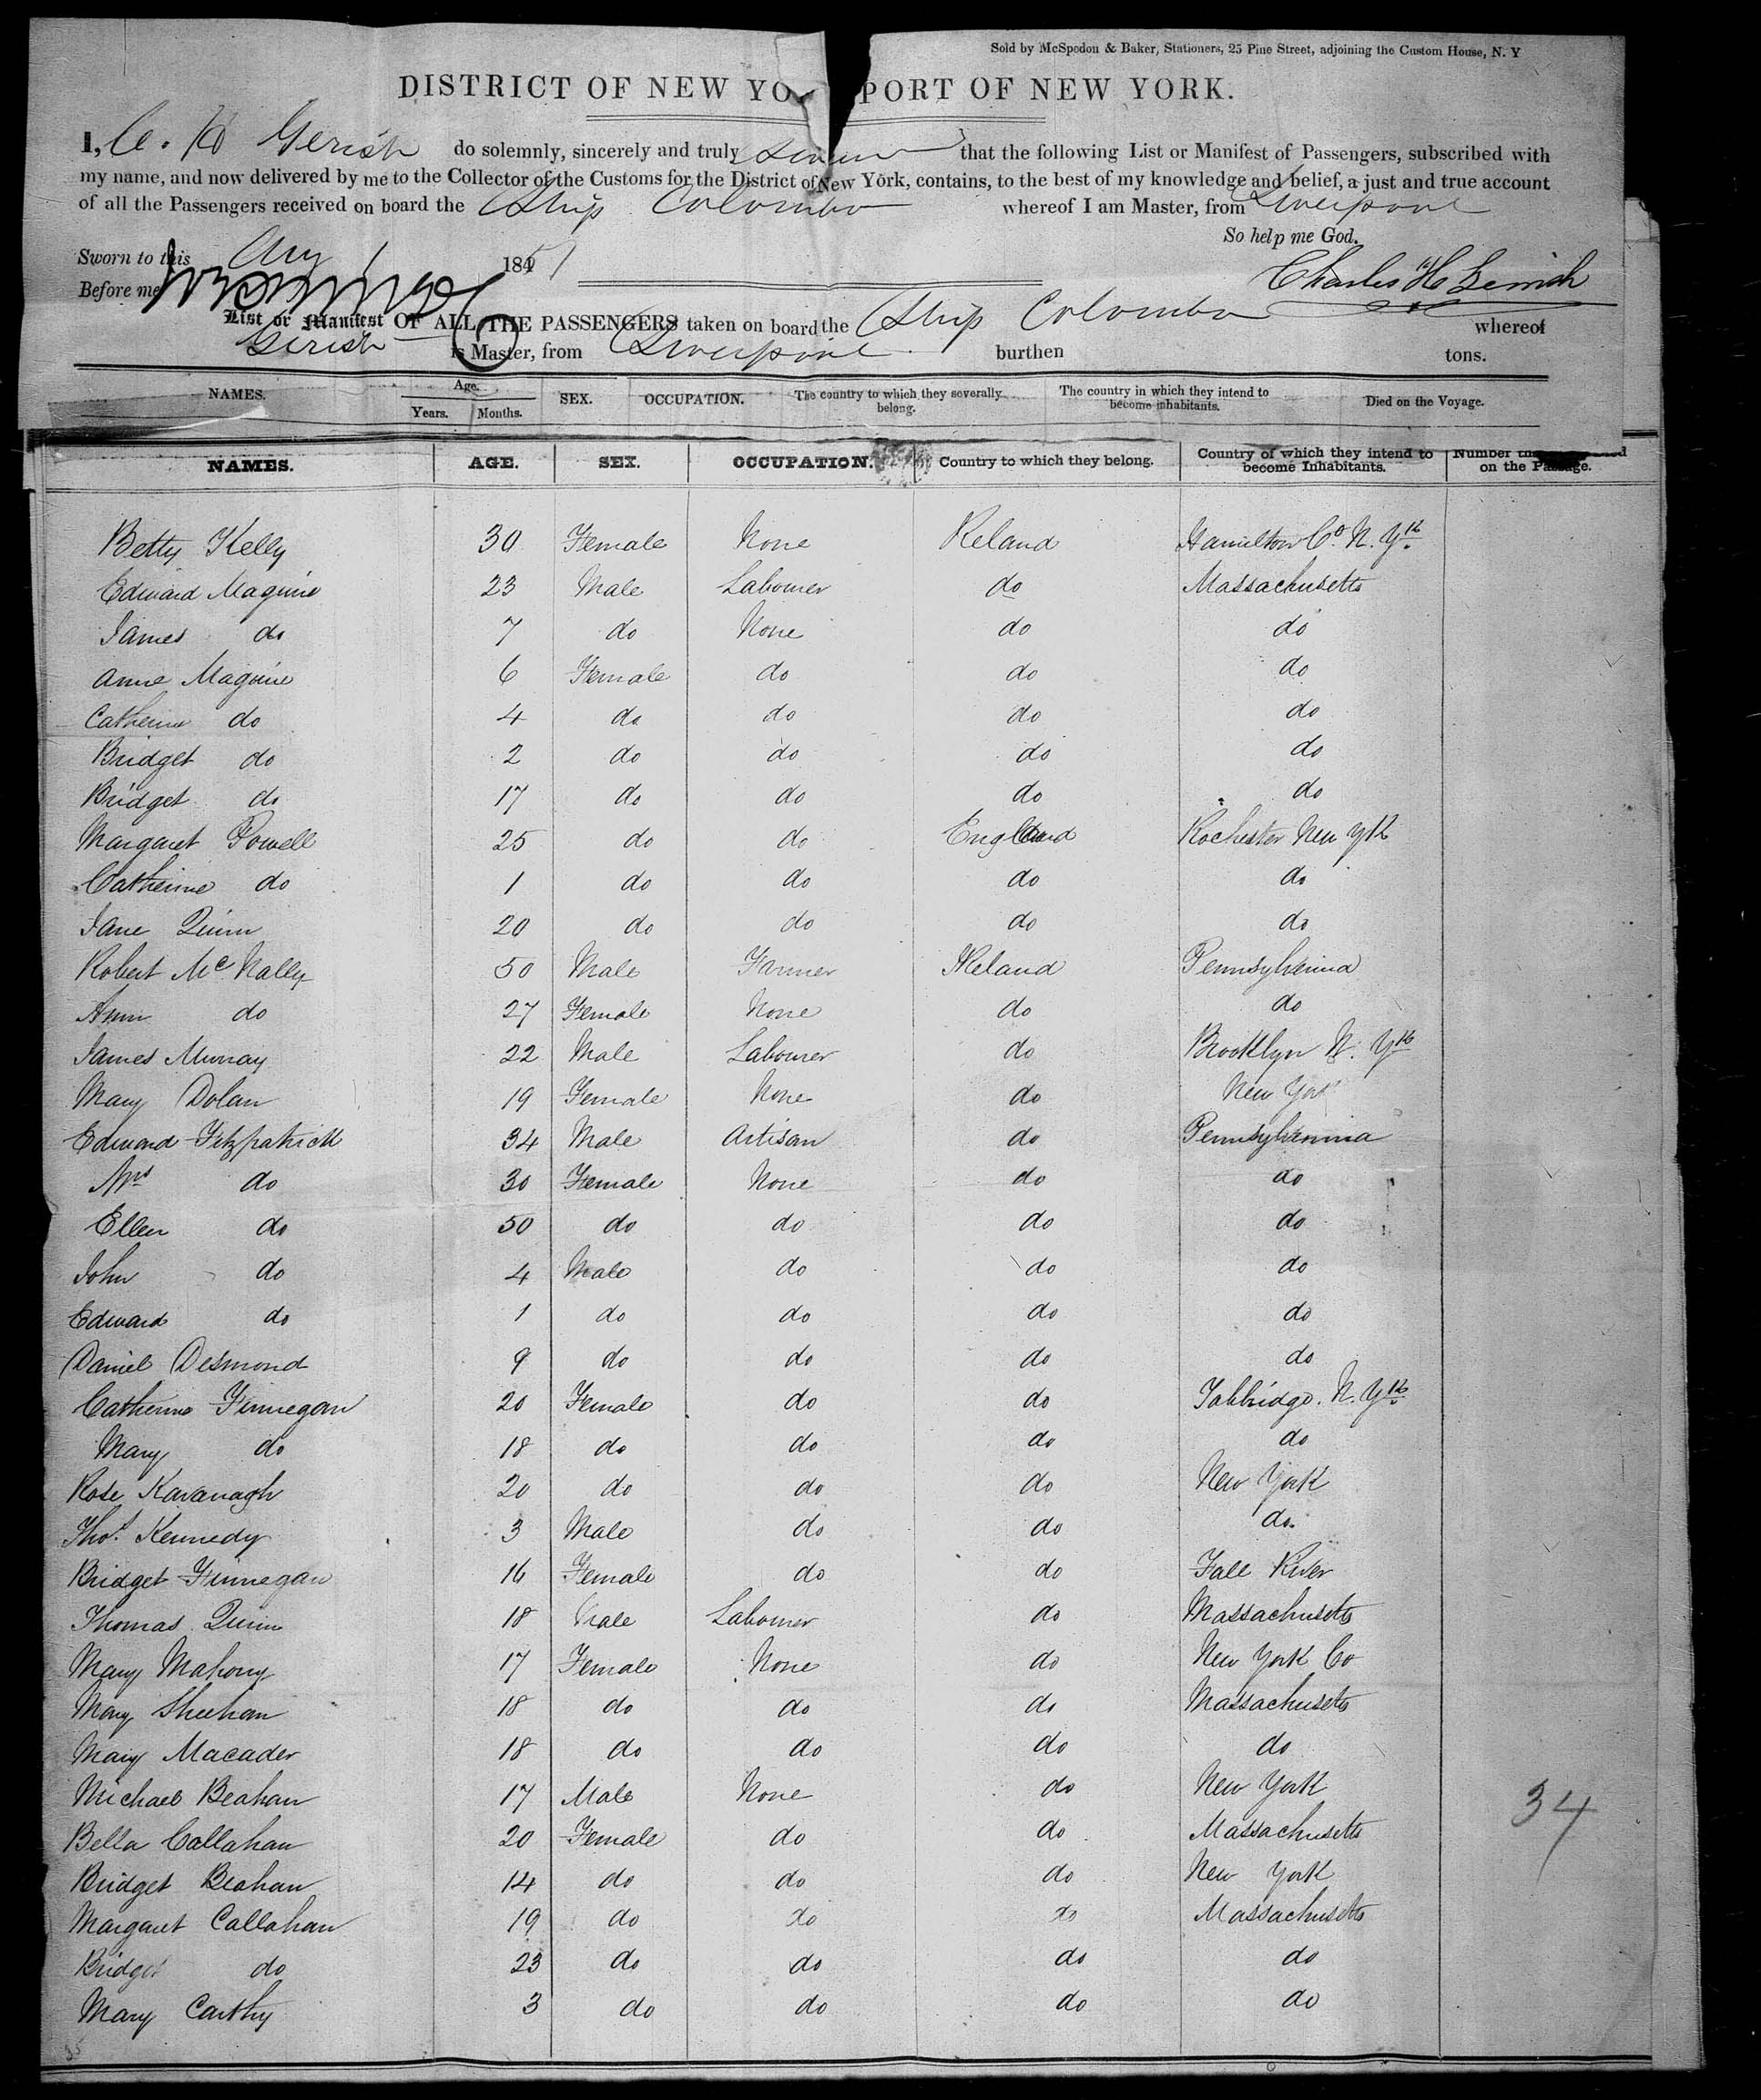 Sold by McSpedon & Baker, Stationers, 25 Pine Street, adjoining the Custom House, N. Y
DISTRICT OF NEW YO PORT OF NEW YORK.
I, C. H Gerish do solemnly, sincerely and truly swear that the following List or Manifest of Passengers, subscribed with
my name, and now delivered by me to the Collector of the Customs for the District of New York, contains, to the best of my knowledge and belief, a just and true account
of all the Passengers received on board the Ship Colombo whereof I am Master, from Liverpool
So help me God.
Sworn to this Aug 1 1851
Before me
Charles H Gerrish
List or Manifest OF ALL THE PASSENGERS taken on board the Ship Colombo whereof
Gerish is Master, from Liverpool burthen tons.
NAMES. Age. Years. Months. SEX. OCCUPATION. The country to which they severally belong. The country in which they intend to become inhabitants. Died on the Voyage.
NAMES. AGE. SEX. OCCUPATION. Country to which they belong. Country of which they intend to become Inhabitants. Number on the Passage.
Betty Kelly 30 Female None Ireland Hamilton Co. N. Yk
Edward Maguire 23 Male Labourer do Massachusetts
James do 7 do None do do
Anne Maguire 6 Female do do do
Catherine do 4 do do do do
Bridget do 2 do do do do
Bridget do 17 do do do do
Margaret Powell 25 do do England Rochester New Yk
Catherine do 1 do do do do
Jane Quinn 20 do do do do
Robert McNally 50 Male Farmer Ireland Pennsylvania
Ann do 27 Female None do do
James Murray 22 Male Labourer do Brooklyn N. Yk
Mary Dolan 19 Female None do New York
Edward Fitzpatrick 34 Male Artisan do Pennsylvania
Mrs do 30 Female None do do
Ellen do 50 do do do do
John do 4 Male do do do
Edward do 1 do do do do
Daniel Desmond 9 do do do do
Catherine Finnegan 20 Female do do N. Yk
Mary do 18 do do do do
Rose Kavanagh 20 do do do New York
Thos. Kennedy 3 Male do do do.
Bridget Finnegan 16 Female do do Fall River
Thomas Quinn 18 Male Labourer do Massachusetts
Mary Mahony 17 Female None do New York Co
Mary Sheehan 18 do do do Massachusetts
Mary Macader 18 do do do do
Michael Beahan 17 Male None do New York
34
Bella Callahan 20 Female do do Massachusetts
Bridget Beahan 14 do do do New York
Margaret Callahan 19 do do do Massachusetts
Bridget do 23 do do do do
Mary Carthy 3 do do do do
35